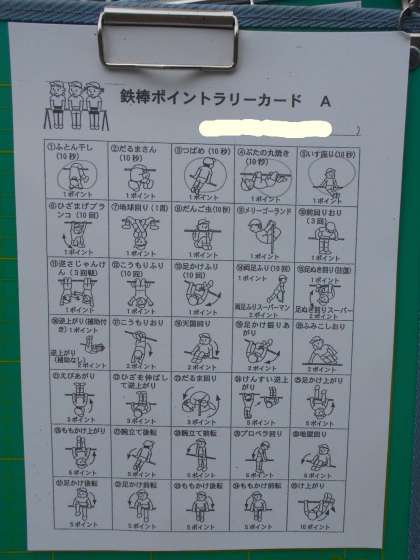 鉄棒ポイントラリーカード　A
①ふとん干し
(10秒)
1ポイント
②だるまさん
(10秒)
1ポイント
③つばめ (10秒)
1ポイント
④ぶたの丸焼き
(10秒)
1ポイント
⑤いす座り(10秒)
1ポイント
⑥ひざまげブラ
ンコ (10回)
1ポイント
⑦地球回り(1回)
1ポイント
⑧だんご虫(10秒)
1ポイント
⑨メリーゴーランド
1ポイント
⑩前回りおり
(3回)
1ポイント
⑪逆さじゃんけ
ん (3回勝)
1ポイント
⑫こうもりふり
(10回)
1ポイント
⑬足かけふり
(10回)
1ポイント
⑭両足ふり(10回)
1ポイント
両足ふりスーパーマン
2ポイント
⑮足ぬき回り(往復)
1ポイント
足ぬき回りスーパー
2ポイント
⑯逆上がり(補助付
き) 1ポイント
逆上がり
(補助なし)
2ポイント
⑰こうもりおり
2ポイント
⑱天国回り
2ポイント
⑲足かけ振りあ
がり
2ポイント
⑳ふみこしおり
2ポイント
㉑えびあがり
2ポイント
㉒ひざを伸ばし
て逆上がり
3ポイント
㉓だるま回り
3ポイント
㉔けんすい逆上
がり
5ポイント
㉕足かけ上がり
5ポイント
㉖ももかけ上がり
5ポイント
㉗腕立て後転
5ポイント
㉘腕立て前転
5ポイント
㉙プロペラ回り
5ポイント
㉚地獄回り
5ポイント
㉛足かけ後転
5ポイント
㉜足かけ前転
5ポイント
㉝ももかけ後転
5ポイント
㉞ももかけ前転
5ポイント
㉟け上がり
10ポイント